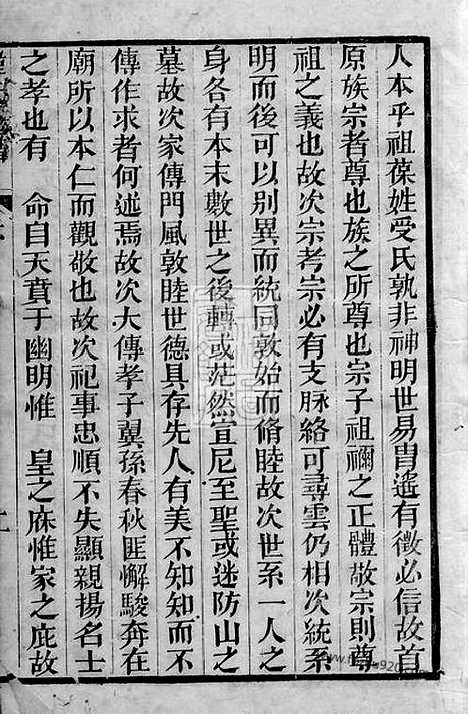 人本乎祖葆姓受氏孰非神明世易胄遙有徵必信故首
原族宗者尊也族之所尊也宗子祖禰之正體敬宗則尊
祖之義也故次宗考宗必有支脉絡可尋雲仍相次統系
明而後可以别異而統同敦始而脩睦故次世系一人之
身各有本末數世之後轉或茫然宣尼至聖或迷防山之
墓故次家傳門風敦睦世德具存先人有美不知知而不
傳作求者何述焉故次大傳孝子翼孫春秋匪懈駿奔在
廟所以本仁而觀敬也故次祀事忠順不失顯親揚名士
之孝也有　命自天賁于幽明惟　皇之庥惟家之庇故